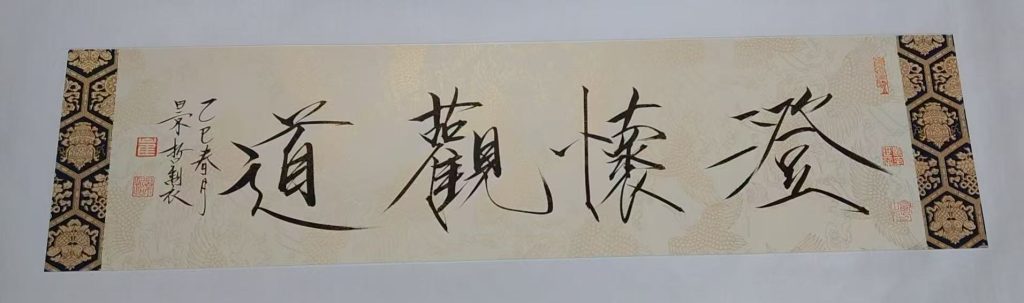 澄懷觀道
乙巳春月